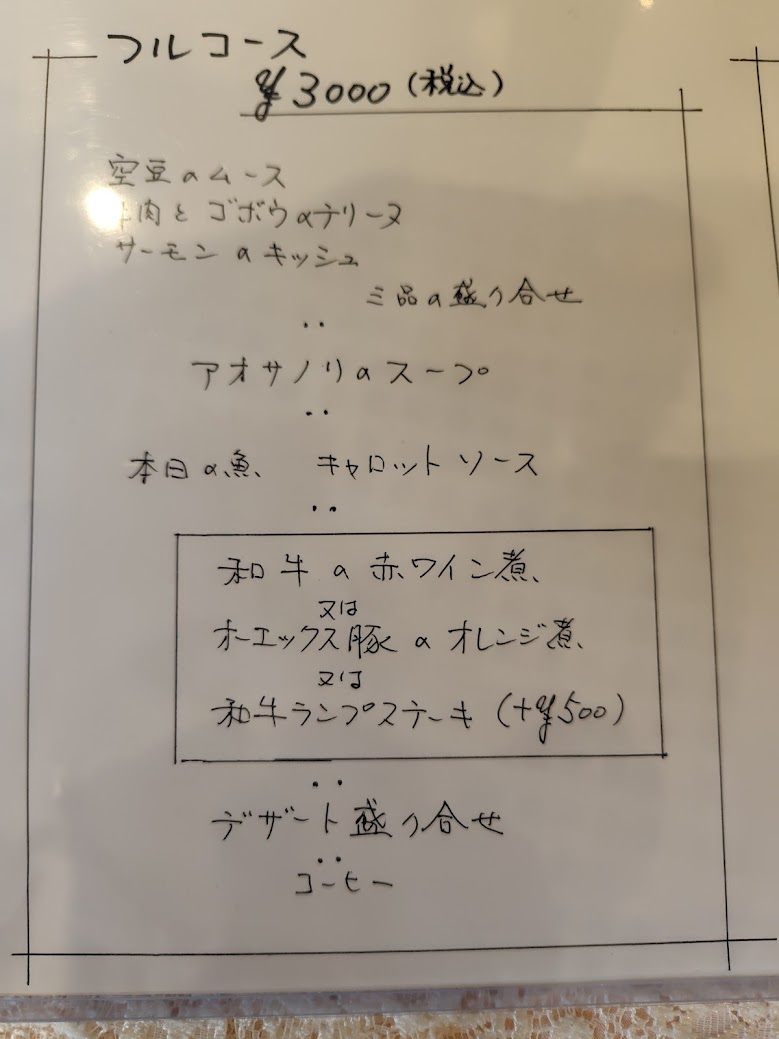 フルコース
¥3000(税込)
空豆のムース
肉とゴボウのテリーヌ
サーモンのキッシュ
三品の盛り合せ
アオサノリのスープ
本日の魚 キャロットソース
和牛の赤ワイン煮
又は
オーエックス豚のオレンジ煮
又は
和牛ランプステーキ(+¥500)
デザート盛り合せ
コーヒー